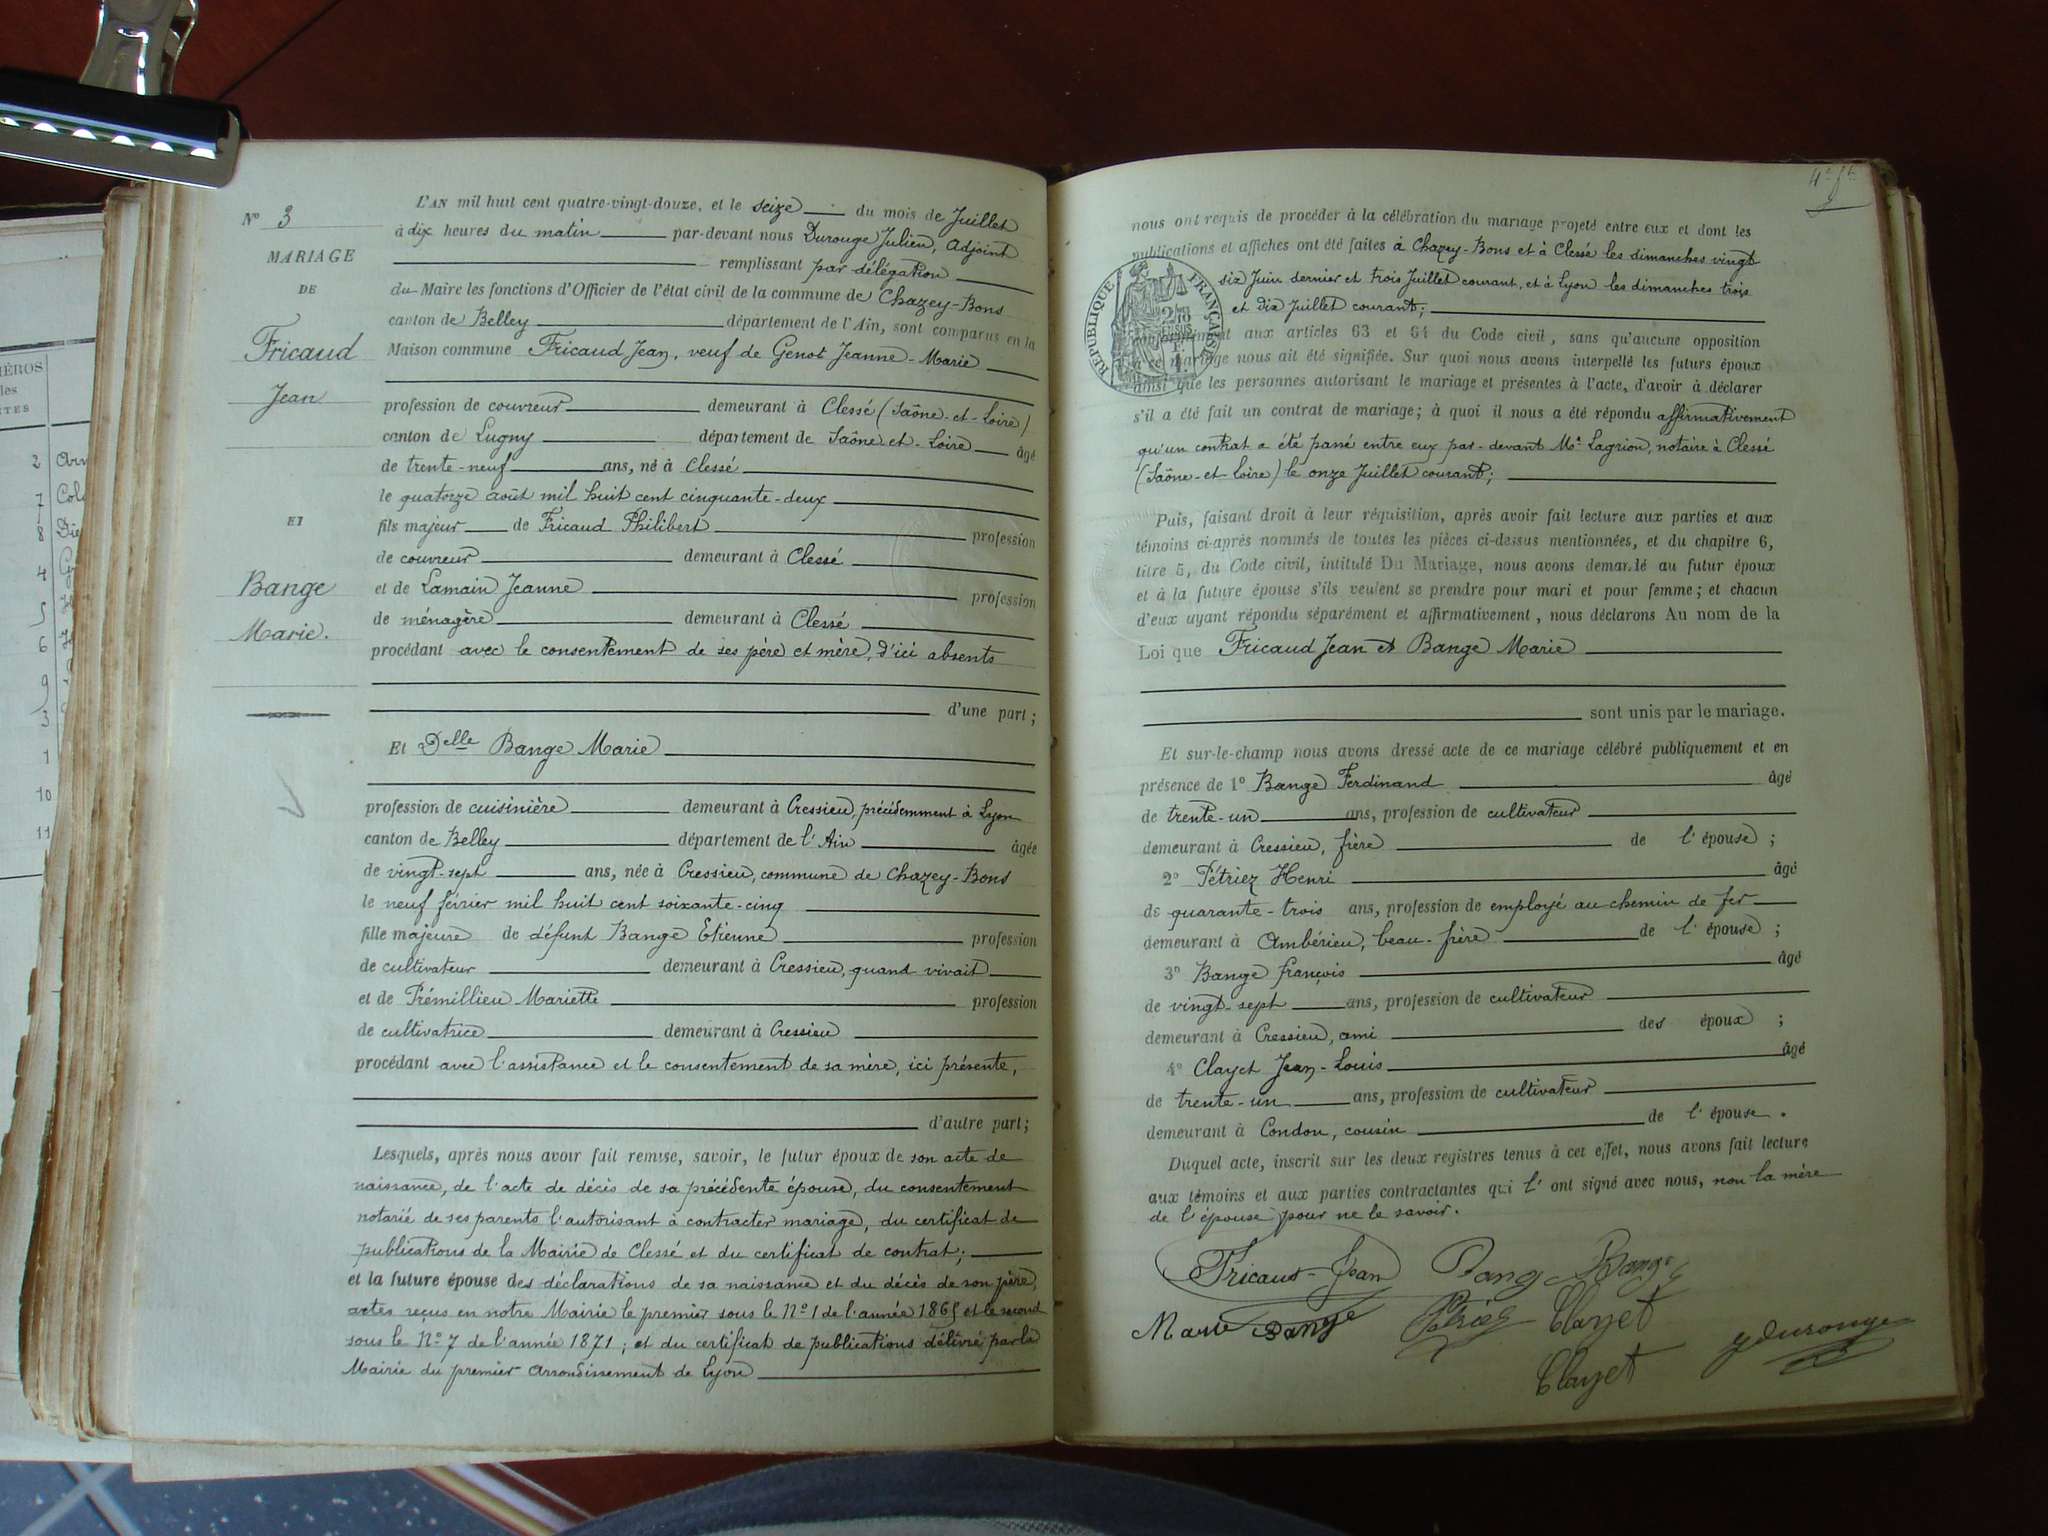 N° 3
MARIAGE
DE
Fricaud
Jean
ET
Bange
Marie.
L'AN mil huit cent quatre-vingt-douze, et le seize du mois de Juillet
à dix heures du matin par-devant nous Durouge Julien, Adjoint
remplissant par délégation
du Maire les fonctions d'Officier de l'état civil de la commune de Chazey-Bons
canton de Belley département de l'Ain, sont comparus en la
Maison commune Fricaud Jean, veuf de Genot Jeanne-Marie
profession de couvreur demeurant à Clessé (Saône-et-Loire)
canton de Lugny département de Saône-et-Loire âgé
de trente-neuf ans, né à Clessé
le quatorze août mil huit cent cinquante-deux
fils majeur de Fricaud Philibert profession
de couvreur demeurant à Clessé
et de Lamain Jeanne profession
de ménagère demeurant à Clessé
procédant avec le consentement de ses père et mère, d'ici absents
d'une part;
Et Delle Bange Marie
profession de cuisinière demeurant à Cressieu, précédemment à Lyon
canton de Belley département de l'Ain âgée
de vingt-sept ans, née à Cressieu, commune de Chazey-Bons
le neuf février mil huit cent soixante-cinq
fille majeure de défunt Bange Etienne profession
de cultivateur demeurant à Cressieu, quand vivait
et de Prémillieu Mariette profession
de cultivatrice demeurant à Cressieu
procédant avec l'assistance et le consentement de sa mère, ici présente,
d'autre part;
Lesquels, après nous avoir fait remise, savoir, le futur époux de son acte de
naissance, de l'acte de décès de sa précédente épouse, du consentement
notarié de ses parents l'autorisant à contracter mariage, du certificat de
publications de la Mairie de Clessé et du certificat de contrat;
et la future épouse des déclarations de sa naissance et du décès de son père,
actes reçus en notre Mairie le premier sous le N° 1 de l'année 1865 et le second
sous le N° 7 de l'année 1871; et du certificat de publications délivré par la
Mairie du premier arrondissement de Lyon
nous ont requis de procéder à la célébration du mariage projeté entre eux et dont les
publications et affiches ont été faites à Chazey-Bons et à Clessé les dimanches vingt
six Juin dernier et trois Juillet courant, et à Lyon les dimanches trois
et dix Juillet courant;
RÉPUBLIQUE FRANÇAISE
conformément aux articles 63 et 64 du Code civil, sans qu'aucune opposition
à ce mariage nous ait été signifiée. Sur quoi nous avons interpellé les futurs époux
ainsi que les personnes autorisant le mariage et présentes à l'acte, d'avoir à déclarer
s'il a été fait un contrat de mariage; à quoi il nous a été répondu affirmativement
qu'un contrat a été passé entre eux par-devant Me Lagrion, notaire à Clessé
(Saône-et-Loire) le onze Juillet courant;
Puis, faisant droit à leur réquisition, après avoir fait lecture aux parties et aux
témoins ci-après nommés de toutes les pièces ci-dessus mentionnées, et du chapitre 6,
titre 5, du Code civil, intitulé Du Mariage, nous avons demandé au futur époux
et à la future épouse s'ils veulent se prendre pour mari et pour femme; et chacun
d'eux ayant répondu séparément et affirmativement, nous déclarons Au nom de la
Loi que Fricaud Jean et Bange Marie
sont unis par le mariage.
Et sur-le-champ nous avons dressé acte de ce mariage célébré publiquement et en
présence de 1° Bange Ferdinand âgé
de trente-un ans, profession de cultivateur
demeurant à Cressieu, frère de l'épouse;
2° Pétriez Henri âgé
de quarante-trois ans, profession de employé au chemin de fer
demeurant à Ambérieu, beau-frère de l'épouse;
3° Bange françois âgé
de vingt-sept ans, profession de cultivateur
demeurant à Cressieu, ami des époux;
4° Clayet Jean-Louis âgé
de trente-un ans, profession de cultivateur
demeurant à Condon, cousin de l'épouse.
Duquel acte, inscrit sur les deux registres tenus à cet effet, nous avons fait lecture
aux témoins et aux parties contractantes qui l'ont signé avec nous, non la mère
de l'épouse pour ne le savoir.
Fricaud Jean Bange Bange
Marie Bange Pétriez Clayet
Clayet J Durouge